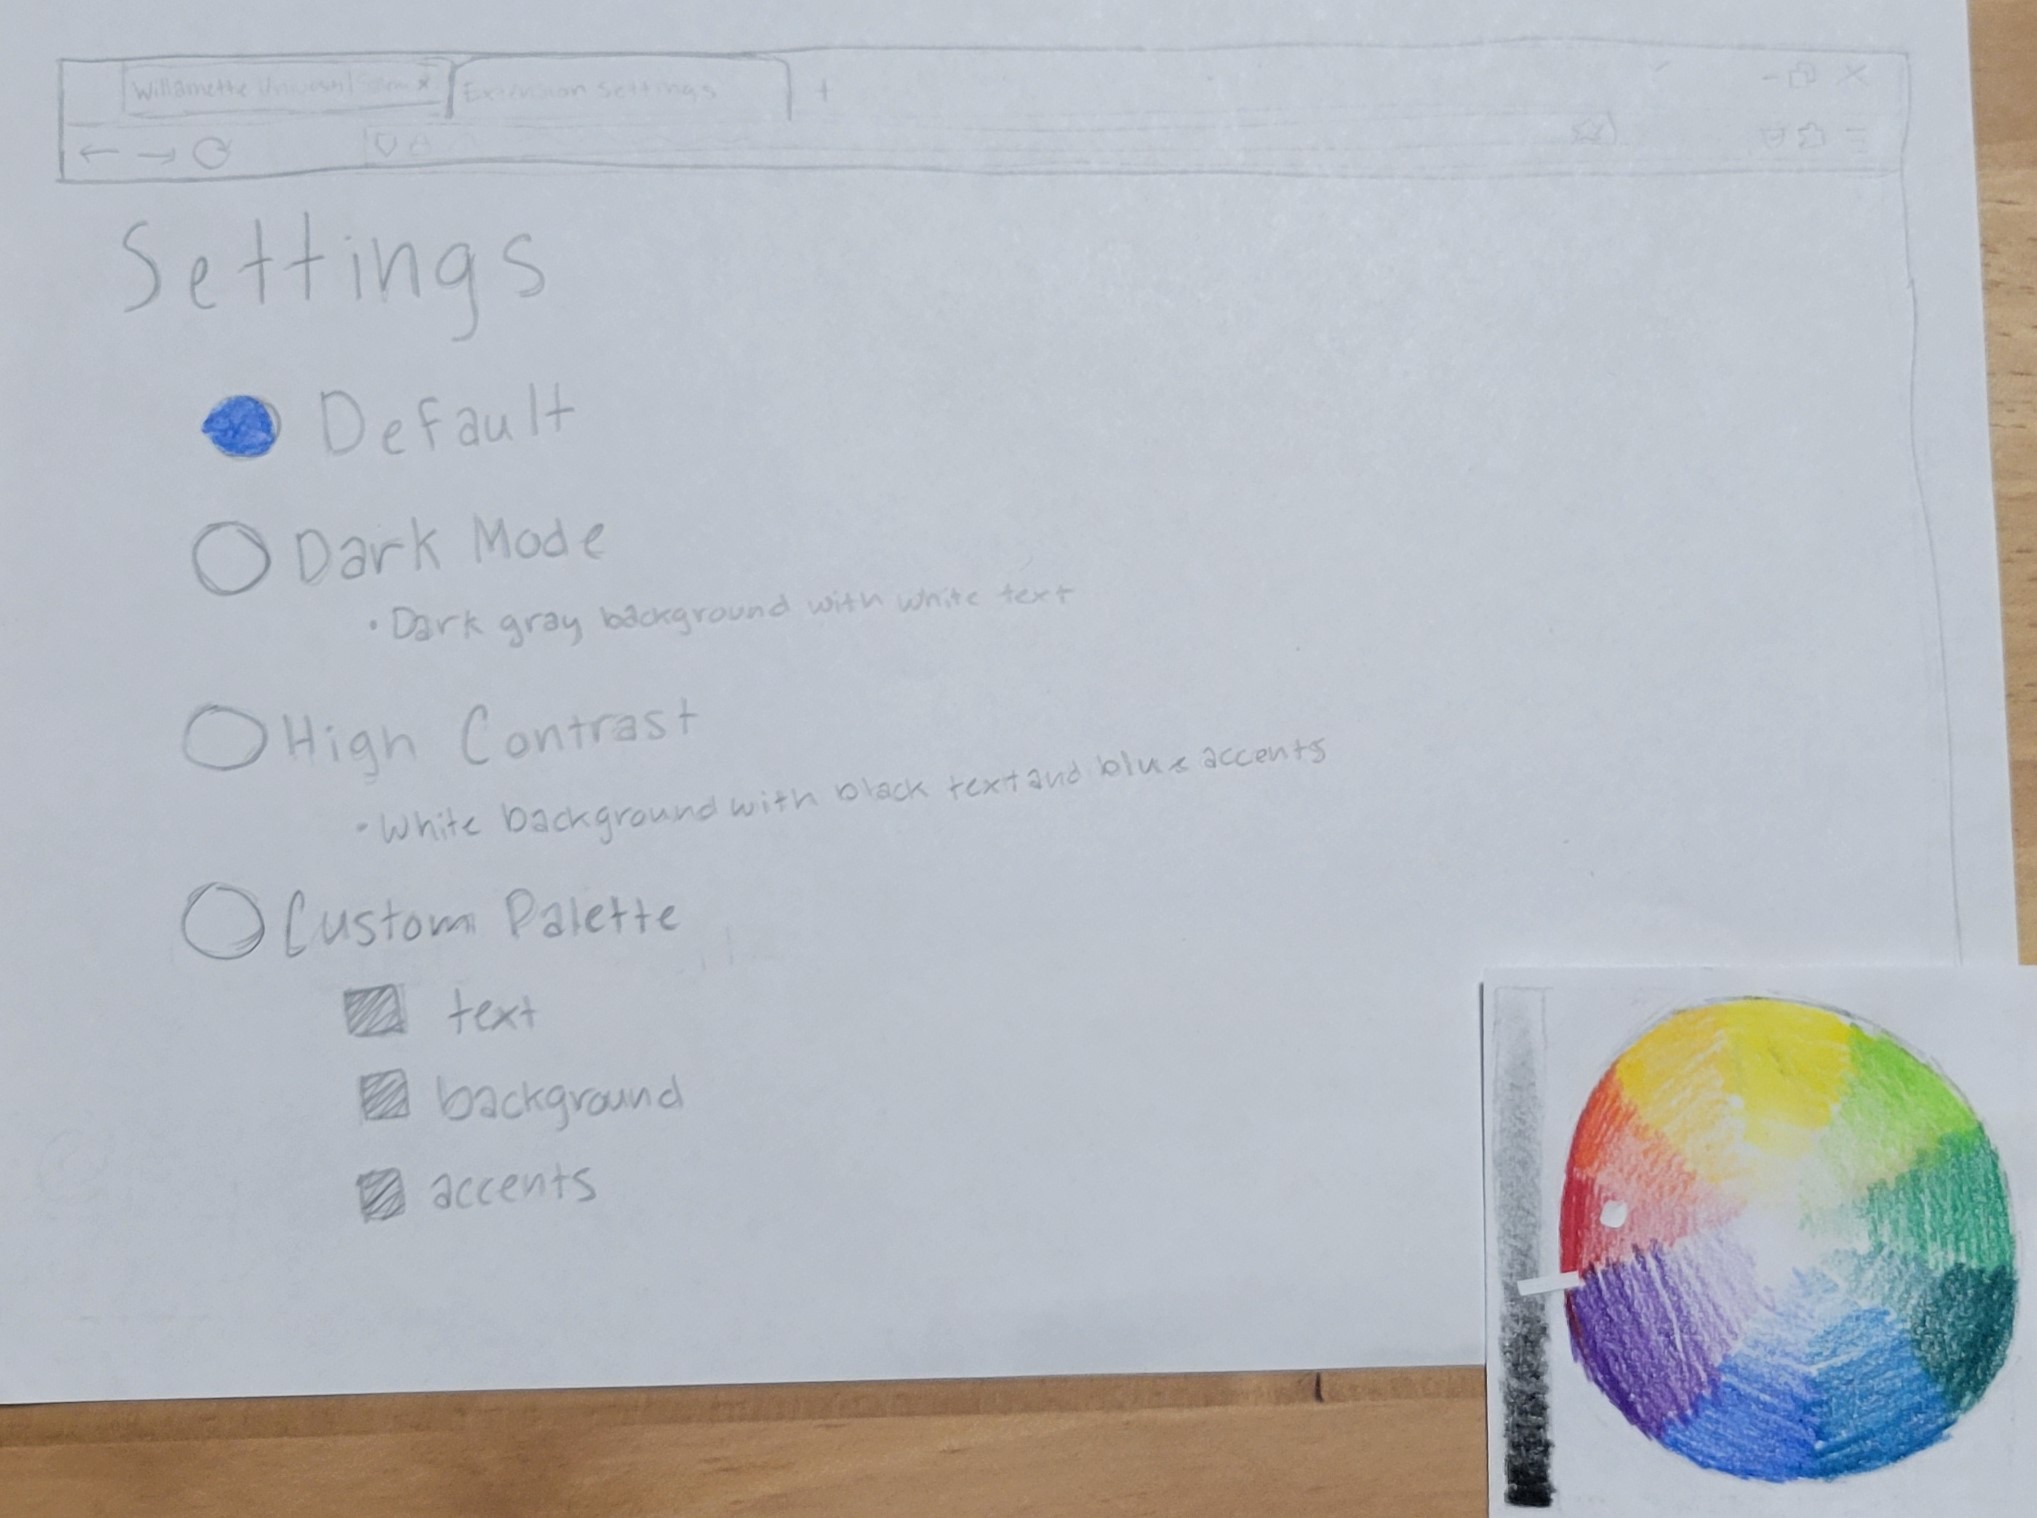 Willamette
Extension Settings
Settings
Default
Dark Mode
• Dark gray background with white text
High Contrast
• White background with black text and blue accents
Custom Palette
text
background
accents